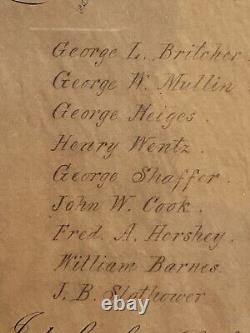 George L. Britcher
George W. Mullin
George Heiges.
Henry Wentz.
George Shaffer.
John W. Cook.
Fred. A. Hershey.
William Barnes.
J. B. Slothower